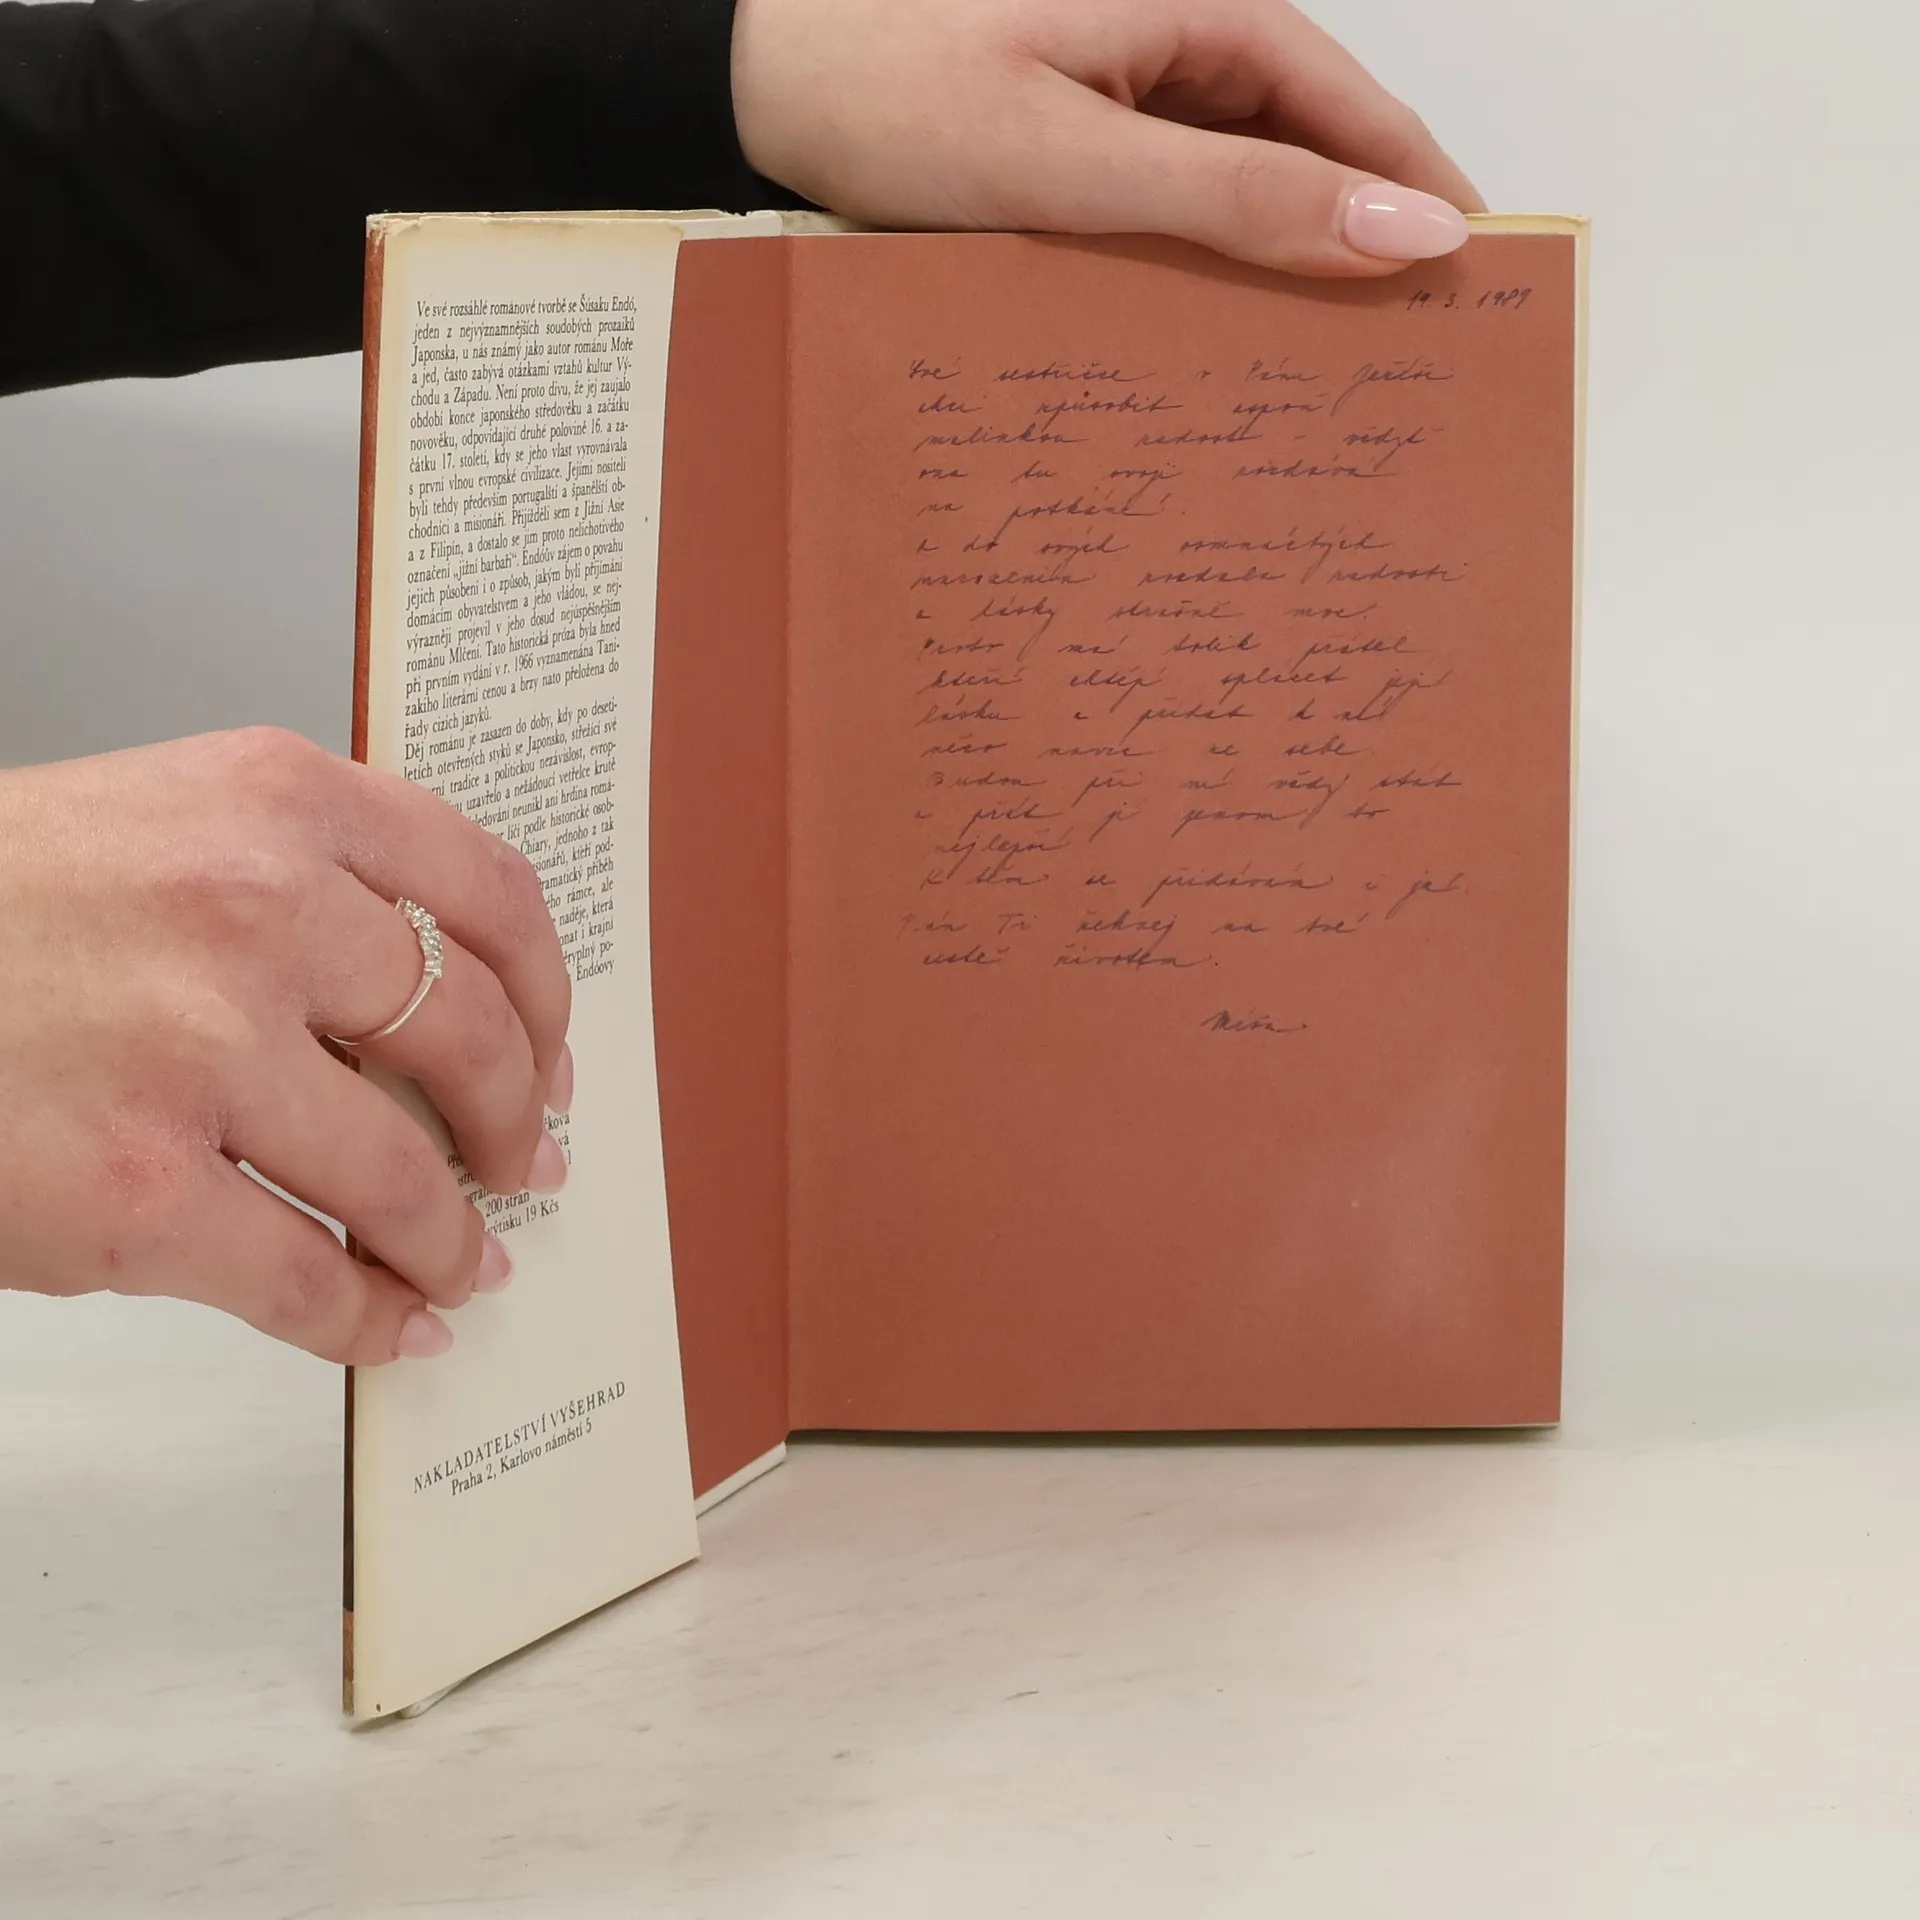 Ve své rozsáhlé románové tvorbě se Šúsaku Endó,
jeden z nejvýznamnějších soudobých prozaiků
Japonska, u nás známý jako autor románu Moře
a jed, často zabývá otázkami vztahů kultur Vý-
chodu a Západu. Není proto divu, že jej zaujalo
období konce japonského středověku a začátku
novověku, odpovídající druhé polovině 16. a za-
čátku 17. století, kdy se jeho vlast vyrovnávala
s první vlnou evropské civilizace. Jejími nositeli
byli tehdy především portugalští a španělští ob-
chodníci a misionáři. Přijížděli sem z Jižní Asie
a z Filipín, a dostalo se jim proto nelichotivého
označení „jižní barbaři“. Endóův zájem o povahu
jejich působení i o způsob, jakým byli přijímáni
domácím obyvatelstvem a jeho vládou, se nej-
výrazněji projevil v jeho dosud nejúspěšnějším
románu Mlčení. Tato historická próza byla hned
při prvním vydání v r. 1966 vyznamenána Tani-
zakiho literární cenou a brzy nato přeložena do
řady cizích jazyků.
Děj románu je zasazen do doby, kdy po deseti-
letích otevřených styků se Japonsko, střežící své
tradice a politickou nezávislost, evrop-
uzavřelo a nežádoucí vetřelce krutě
neunikl ani hrdina romá-
líčí podle historické osob-
Chiary, jednoho z tak
kteří pod-
příběh
rámce, ale
naděje, která
i krajní
po-
Endóovy
200 stran
19 Kčs
NAKLADATELSTVÍ VYŠEHRAD
Praha 2, Karlovo náměstí 5
19. 3. 1989
Své sestřičce v Pánu Ježíši
chci způsobit aspoň
malinkou radost - vždyť
ona tu svoji rozdává
na potkání.
A do svých osmnáctých
narozenin rozdala radosti
a lásky strašně moc.
Proto má tolik přátel
kteří chtějí splácet její
lásku a přidat k ní
něco navíc ze sebe.
Budou při ní vždy stát
a přát jí jenom to
nejlepší
K těm se přidávám i já.
Pán Ti žehnej na tvé
cestě životem.
Míša